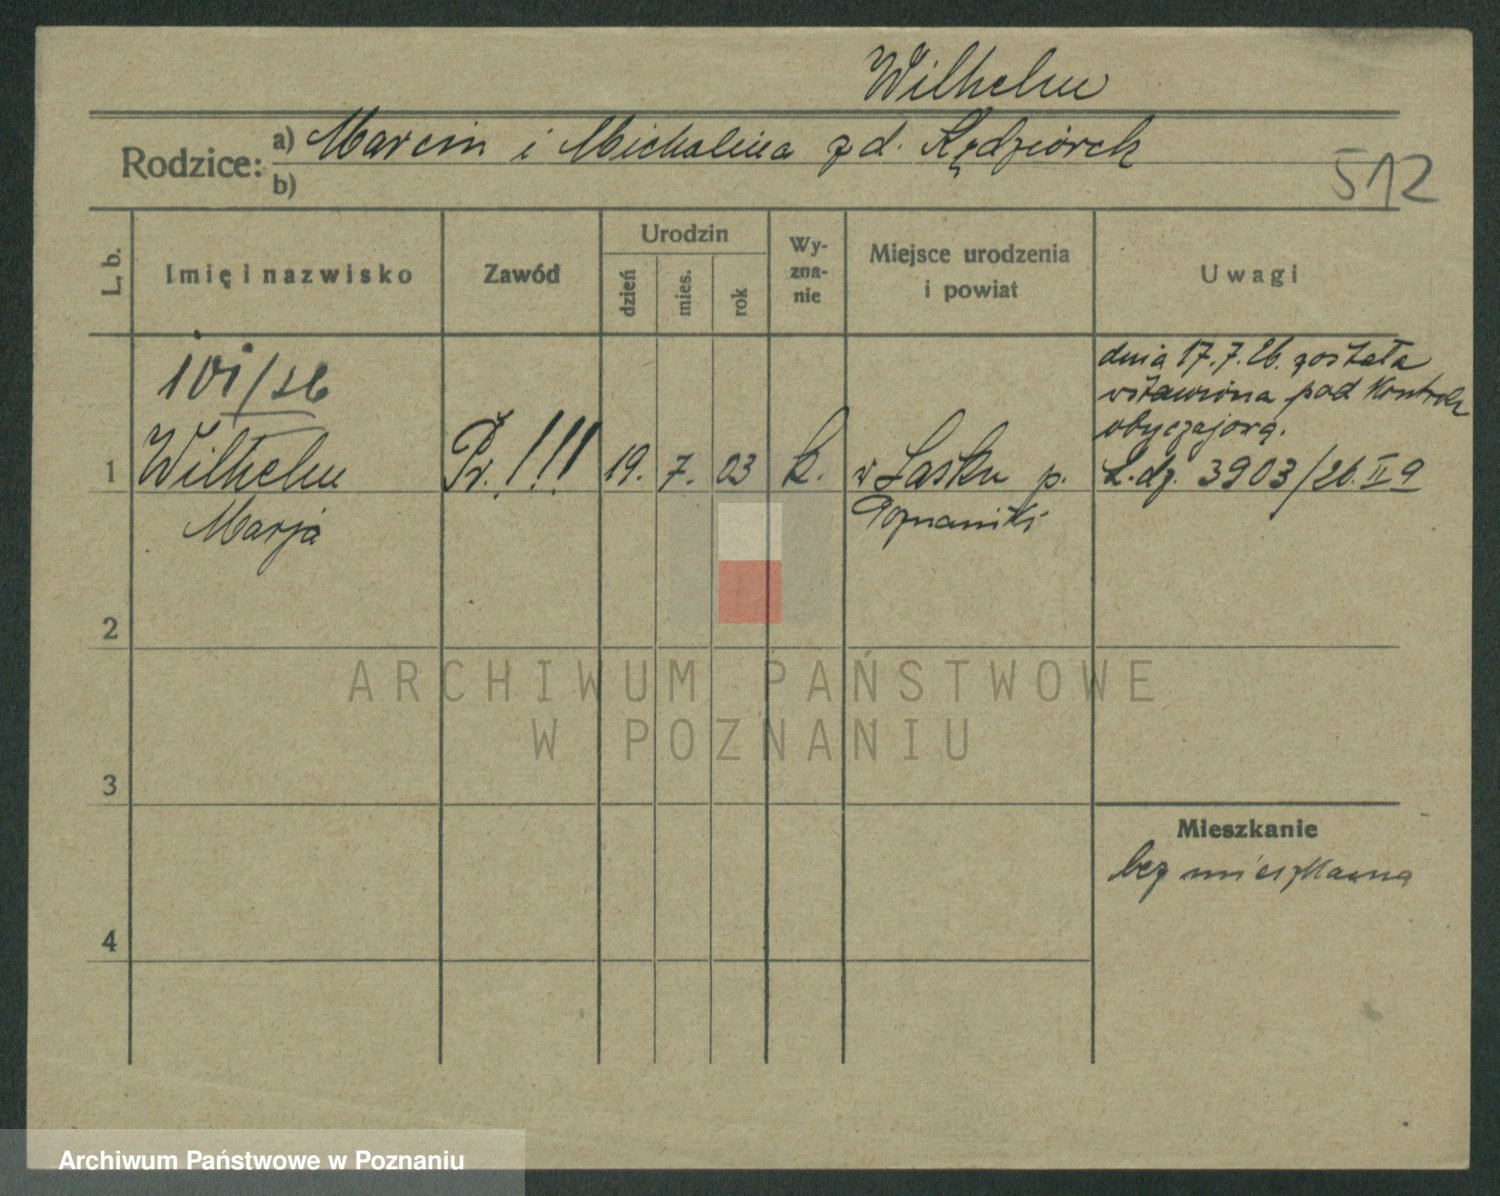 Wilhelm
Rodzice: a) Marcin i Michalina z d. Kędziorek
b)
512
L. b.
Imię i nazwisko
Zawód
Urodzin
dzień
mies.
rok
Wy-
zna-
nie
Miejsce urodzenia
i powiat
Uwagi
dnia 17.7.26. została
wstawiona pod Kontrolę
obyczajorą.
L.dz. 3903/26. II 9
1
Wilhelm
Marja
Pr. !!!
19. 7. 03
k.
w Lasku p.
Poznański
2
3
4
Mieszkanie
bez mieszkania
ARCHIWUM PAŃSTWOWE
W POZNANIU
Archiwum Państwowe w Poznaniu